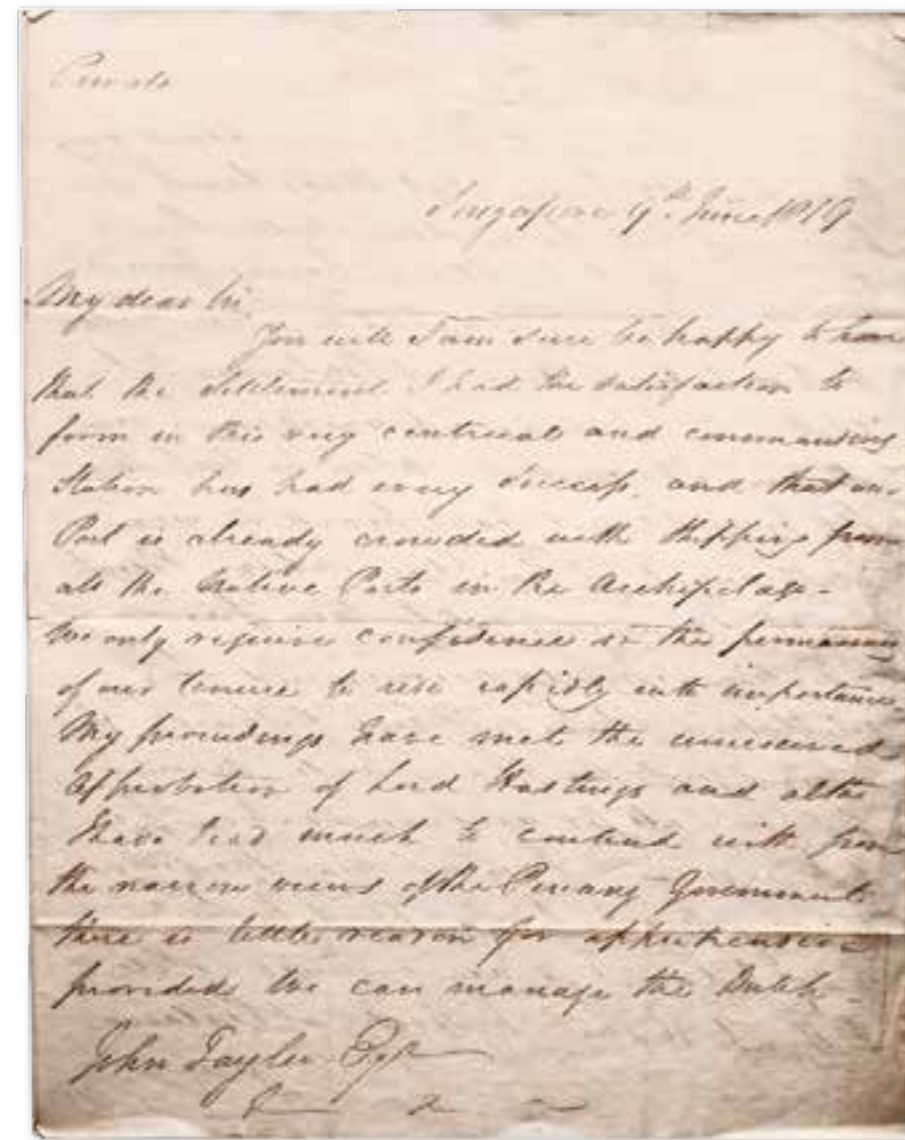 Private
Singapore 9th June 1819
My dear Sir,
You will I am sure be happy to hear
that the Settlement I had the satisfaction to
form in this very centrical and commanding
Station has had every success, and that our
Port is already crowded with Shipping from
all the Native Ports in the Archipelago -
We only require confidence in the permanency
of our tenure to rise rapidly into importance
My proceedings have met the unreserved
Approbation of Lord Hastings and altho
I have had much to contend with from
the narrow views of the Penang Government
there is little reason for apprehension
provided we can manage the Dutch -
John Tayler Esqr